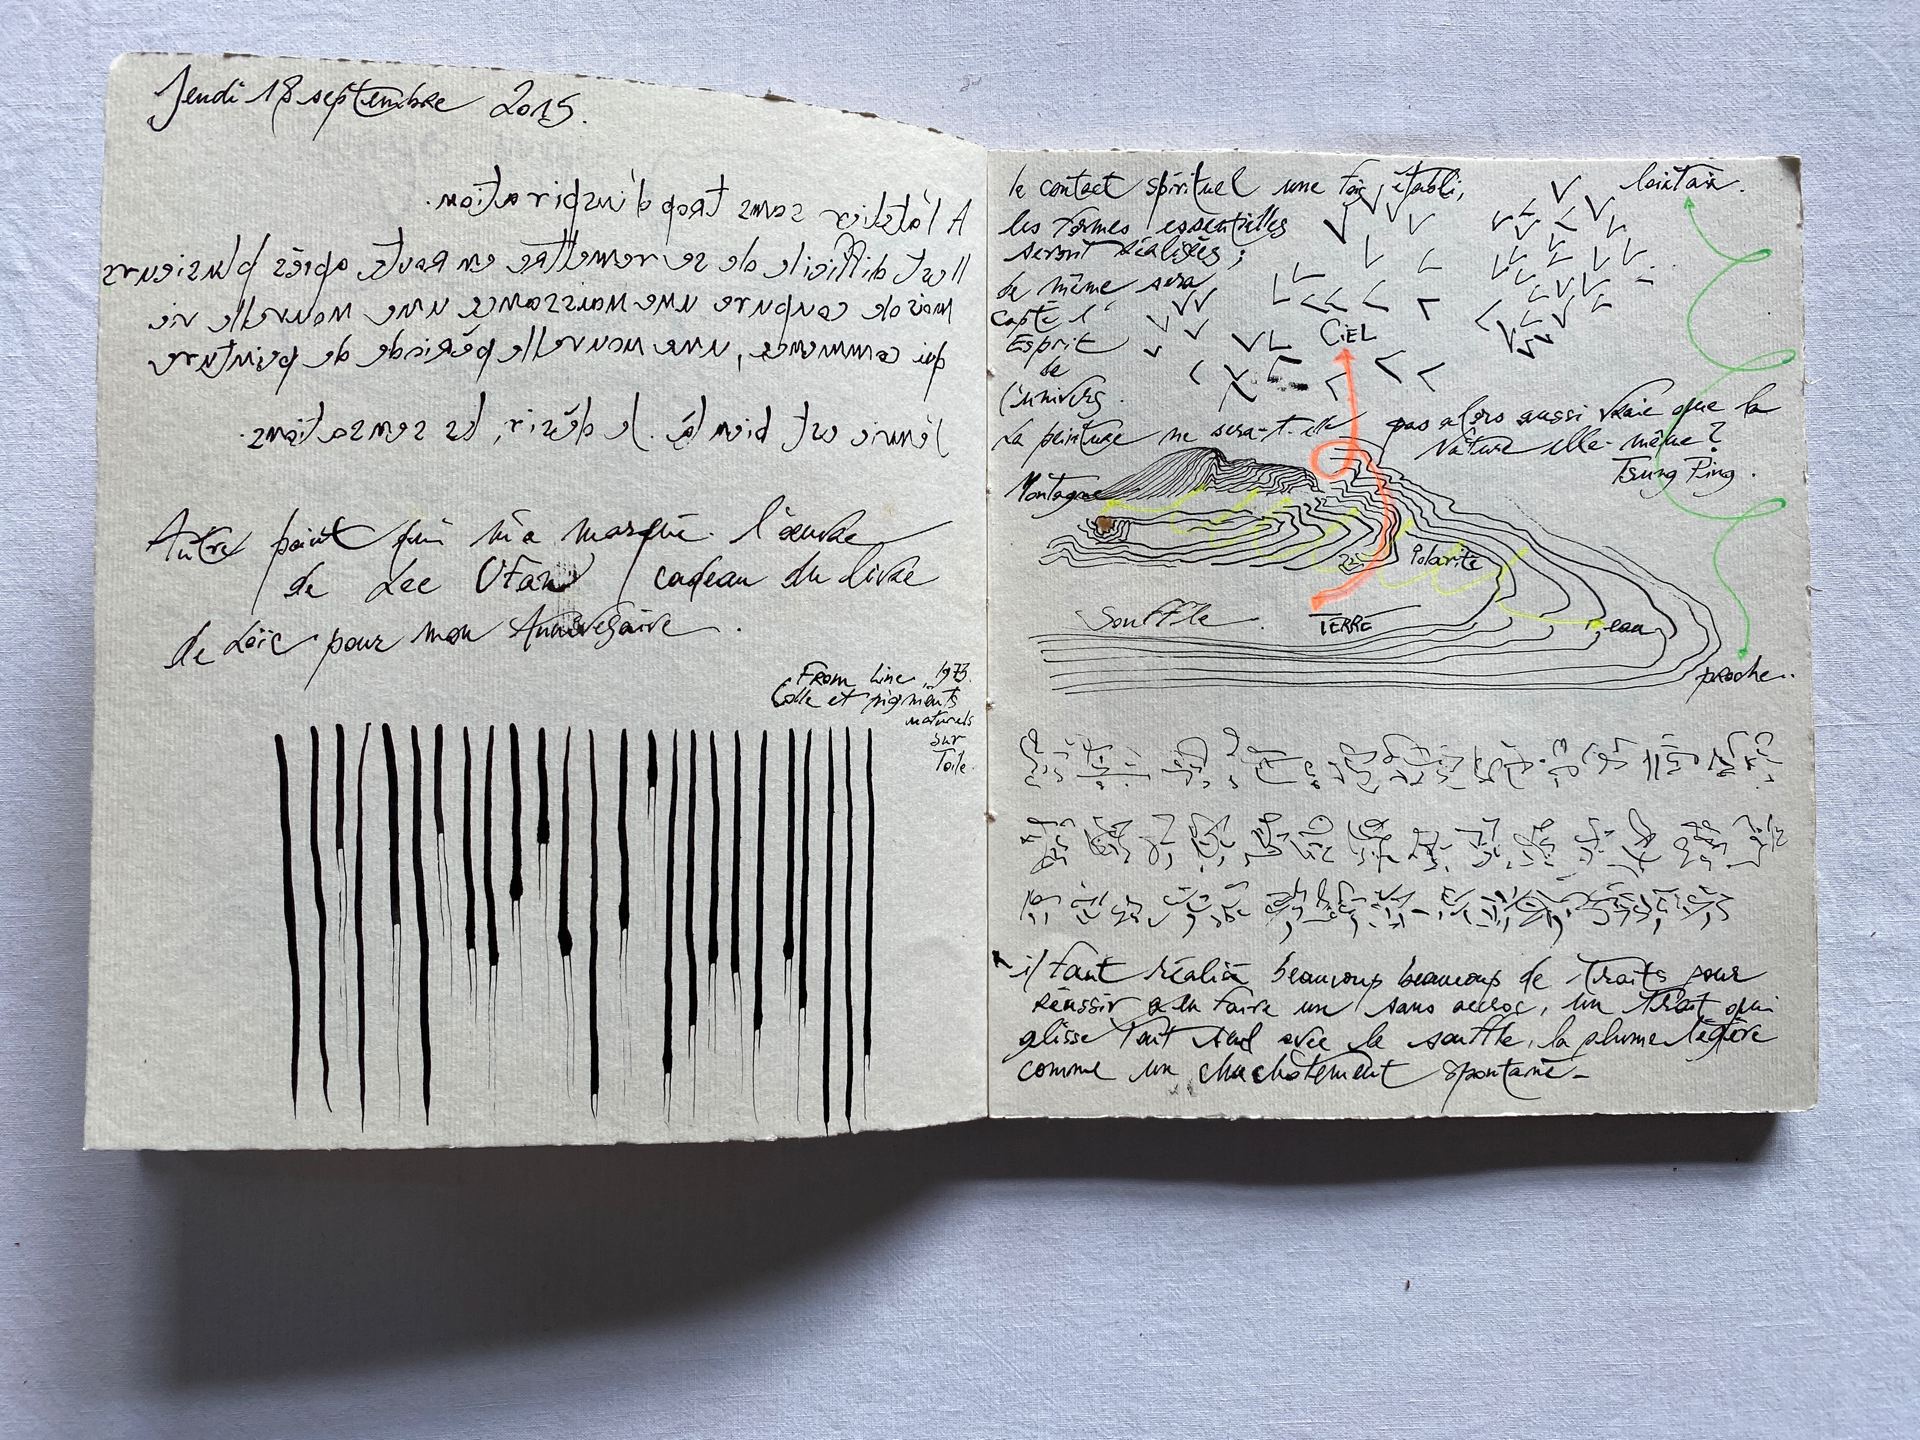 Jeudi 18 septembre 2015.
A l'atelier sans trop d'inspiration.
Il est difficile de se remettre en route après plusieurs
mois de coupure une naissance une nouvelle vie
qui commence, une nouvelle période de peinture
j'envie est bien là. le désir, les sensations.
Autre point qui m'a marqué. l'œuvre
de Lee Ufan / cadeau du livre
de Loïc pour mon Anniversaire.
From Line, 1973.
Colle et pigments
naturels
sur
Toile.
le contact spirituel une fois établi,
les formes essentielles
seront réalisées ;
de même sera
capté l'
Esprit
de
l'univers.
La peinture ne sera-t-elle pas alors aussi vraie que la
Nature elle-même ?
Tsung Ping.
lointain.
CIEL
Montagne
Polarité
Souffle.
TERRE
eau
proche..
il faut réaliser beaucoup beaucoup de Traits pour
réussir a en faire un sans accroc, un trait qui
glisse tout seul avec le souffle, la plume légère
comme un chuchotement spontané-